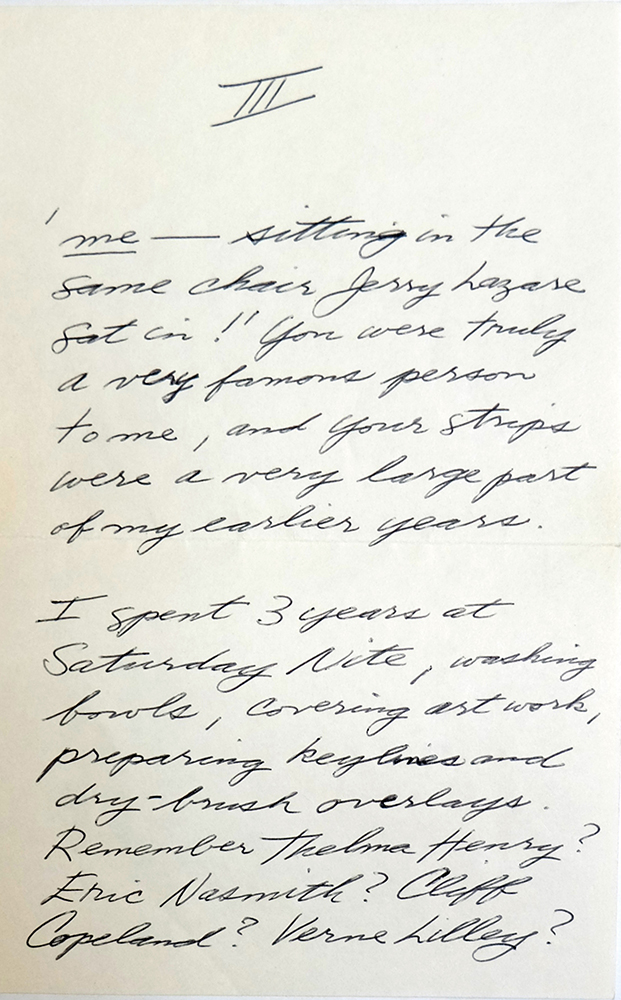 III
' me — sitting in the
same chair Jerry Lazare
sat in !" You were truly
a very famous person
to me, and your strips
were a very large part
of my earlier years.
I spent 3 years at
Saturday Nite, washing
bowls, covering art work,
preparing keylines and
dry-brush overlays.
Remember Thelma Henry?
Eric Nasmith? Cliff
Copeland? Verne Lilley?